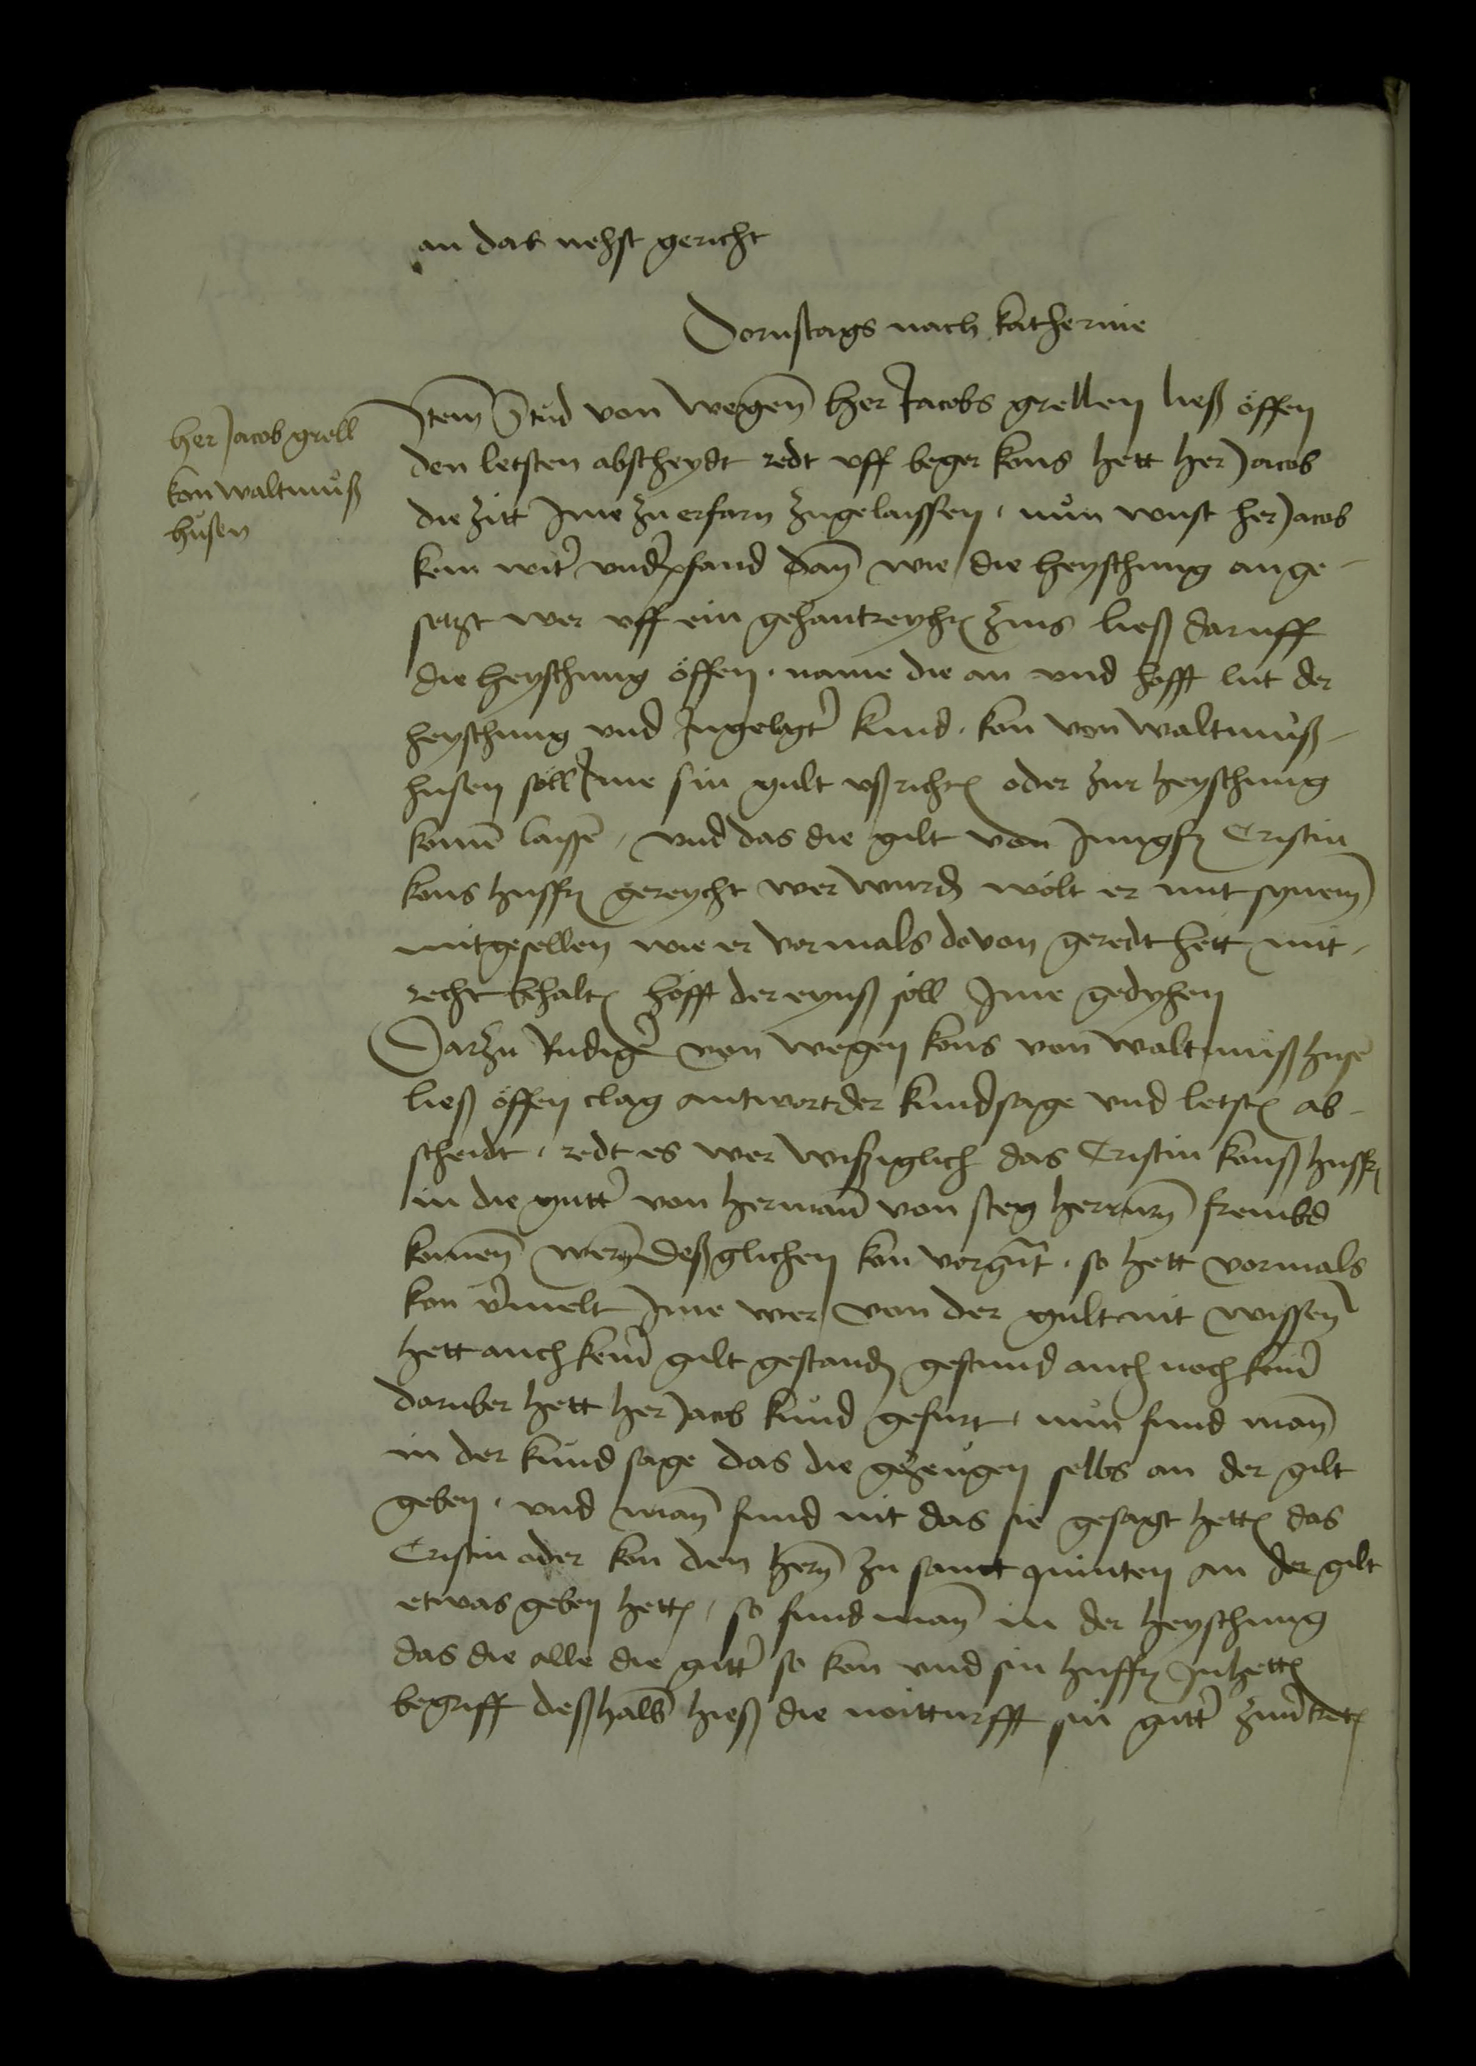 an das nehst gericht
Dornstags nach Katherine
her Jacob grell
kon waltmuß
husen
Item Stud von wegen her Jacobs grellen ließ öffen
den letsten abscheydt redt uff beger kons hett her Jacob
die zitt Ime zu erfarn zugelaissen, nun wust her Jacob
kein witer underpfand dan wie die heyschung ange-
setzt wer uff ein gehantreycht zins ließ daruff
die heyschung öffen, name die an und hofft lut der
heyschung und Ingelegter kund, kon von waltmuß-
husen söll Ime sin gult ußrichten oder zur heyschung
komen laissen, und das die gilt von Jungfr Cristin
kons hussfr gereycht wer wurd wolt er mit synem
mitgesellen wie er vormals davon geredt hett mit
recht behalten hofft der eynß söll Ime gedyhen
Darzu Rudiger von wegen kons von waltmußhusen
ließ öffen clag antwort der kundsage und letsten ab-
scheidt, redt es wer wissiglich das Cristin konß hussfr
in die gutter von herman von steg herrurn frembd
komen wern deßglichen kon vorgnt, so hett vormals
kon vermelt Ime wer von der gult nit wissen
hett auch keiner gilt gestanden gestund auch noch keiner
daruber hett her Jacob kund gefurt, nun fund man
in der kundsage das die gezeugen selbs an der gilt
geben, und man fund nit das sie gesagt hetten das
Cristin oder kon den hern zu sanct quinten an der gilt
etwas geben hetten, so fund man in der heyschung
das die alle die gutter so kon und sin hussfr Inhetten
begriff deßhalb hieß die noitturfft sin gutter